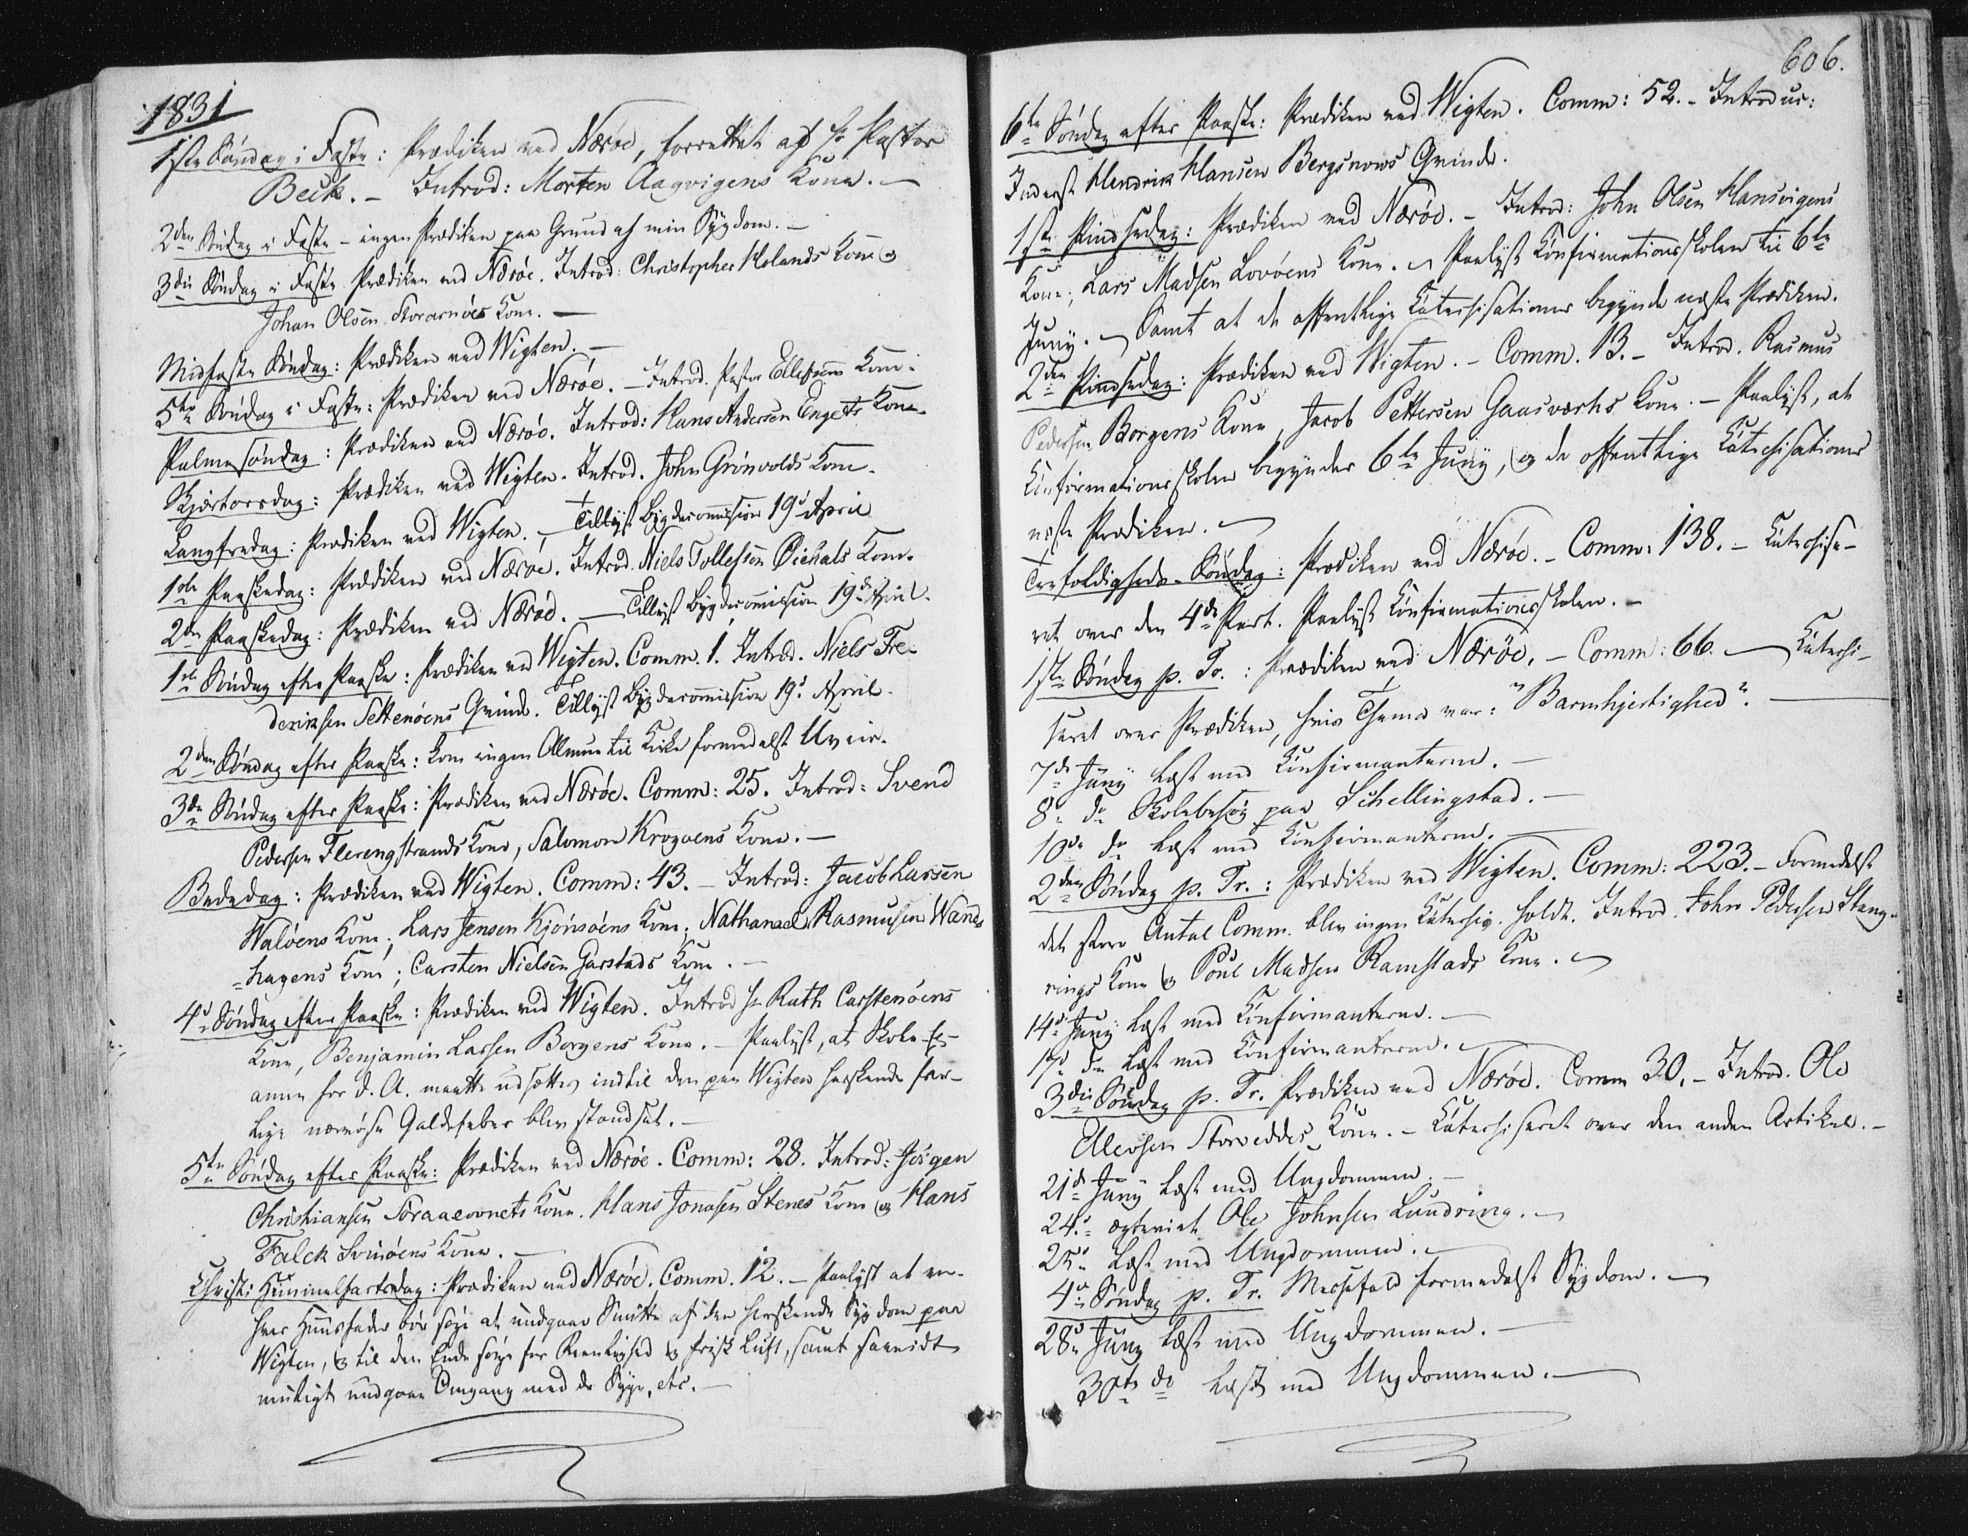 1831
1ste Søndag i Faste: Prædiken ved Nærøe, forrettet af Hr Pastor
Beck. – Introd: Morten Aagvigens Kone. –
2den Søndag i Faste – ingen Prædiken paa Grund af min Sygdom. –
3die Søndag i Faste Prædiken ved Nærøe. Introd: Christopher Holands Kone og
Johan Olsen Storarnöes Kone. –
Midfaste Søndag: Prædiken ved Wigten. –
5te Søndag i Faste: Prædiken ved Nærøe. – Introd. Peter Ellefsens Kone.
Palmesøndag: Prædiken ved Nærøe. Introd: Hans Andersen Engets Kone.
Skjærtorsdag: Prædiken ved Wigten. Introd. John Grönvolds Kone.
Langfredag: Prædiken ved Wigten. – Tillyst Bygdecommission 19d April
1ste Paaskedag: Prædiken ved Nærøe. Introd. Niels Tollefsen Öiehals Kone.
2den Paaskedag: Prædiken ved Nærøe. – Tillyst Bygdecommission 19d April.
1ste Søndag efter Paaske: Prædiken ved Wigten. Comm. 1. Introd. Niels Fre-
deriksen Settenöens Qvinde. Tillyst Bygdecommission 19d April.
2den Søndag efter Paaske: kom ingen Almue til Kirke formedelst Uveir.
3die Søndag efter Paaske: Prædiken ved Nærøe. Comm: 25. Introd: Svend
Pedersen Flerengstrands Kone, Salomon Krogöens Kone. –
Bededag: Prædiken ved Wigten. Comm: 43. – Introd: Jacob Larsen
Walöens Kone; Lars Jensen Kjönsöens Kone; Nathanael Rasmusen Wand-
-hagens Kone; Carsten Nielsen Garstads Kone. –
4d Søndag efter Paaske: Prædiken ved Wigten. Introd Hr Rath Carstenöens
Kone, Benjamin Larsen Borgens Kone. – Paalyst, at Skole-Ex-
amen for d. A. maatte udsættes indtil den paa Wigten herskende far-
lige nervøse Galdefeber blev standset. –
5te Søndag efter Paaske: Prædiken ved Nærøe. Comm: 28. Introd: Jörgen
Christiansen Soraaeovnets Kone. Hans Jonasen Stenes Kone og Hans
Falck Svinöens Kone. –
Christi Himmelfartsdag: Prædiken ved Nærøe. Comm. 12. – Paalyst at en-
hver Huusfader bör söge at undgaae Smitte af den herskende Sygdom paa
Wigten, og til den Ende sörge for Reenlighed og frisk Luft, samt saavidt
muligt undgaae Omgang med de Syge, etc. –
606.
6te Søndag efter Paaske: Prædiken ved Wigten. Comm: 52. – Introduc:
Inderst Hendrik Hansen Bergsnows Qvinde.
1ste Pindsedag: Prædiken ved Nærøe. – Introd: John Olsen Hansvigens
Kone, Lars Madsen Lovöens Kone. – Paalyst Confirmationsskolen til 6te
Juny. – Samt at de offentlige Catechisationer begynde næste Prædiken.
2den Pindsedag: Prædiken ved Wigten. – Comm. 13. – Introd. Rasmus
Pedersen Borgens Kone, Jacob Pettersen Gaasværhs Kone. – Paalyst, at
Confirmationsskolen begynder 6te Juny, og de offentlige Catechisationer
næste Prædiken. –
Trefoldigheds-Søndag: Prædiken ved Nærøe. – Comm: 138. – Catechise-
ret over den 4de Part. Paalyst Confirmationsskolen. –
1ste Søndag p. Tr.: Prædiken ved Nærøe. – Comm: 66. – Catechi-
seret over Prædiken, hvis Thema var: "Barmhjertighed". –
7de Juny læst med Confirmanterne. –
8de do Skolebesög paa Schellingstad. –
10de do læst med Confirmanterne. –
2den Søndag p. Tr.: Prædiken ved Wigten. Comm: 223. – Formedelst
det store Antal Comm. blev ingen Catechis. holdt. Introd. John Pedersen Stang-
rings Kone og Poul Madsen Ramstads Kone. –
14d Juny læst med Confirmanterne. –
17d do læst med Confirmanterne. –
3die Søndag p. Tr. Prædiken ved Nærøe. Comm 30. – Introd. Ole
Ellevsen Storveddes Kone. – Catechiseret over den anden Artikel. –
21d Juny læst med Ungdommen. –
24d ægteviet Ole Johnsen Lundring. –
25d læst med Ungdommen. –
4de Søndag p. Tr. Messefald formedelst Sygdom. –
28d Juny læst med Ungdommen. –
30te do læst med Ungdommen. –